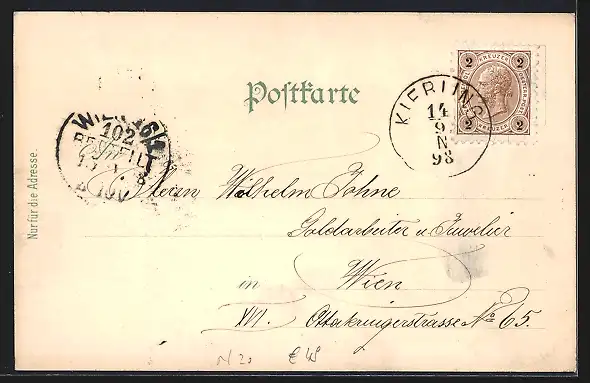 Postkarte
2 KREUZER 2
2 KREUZER 2
KIERLING
14
9
N
98
WIEN 16/1
102
BESTELLT
Nur für die Adresse.
Herrn Wilhelm Johne
Goldarbeiter u. Juwelier
in Wien
XVI. Ottakringerstrasse No 65.
N 20